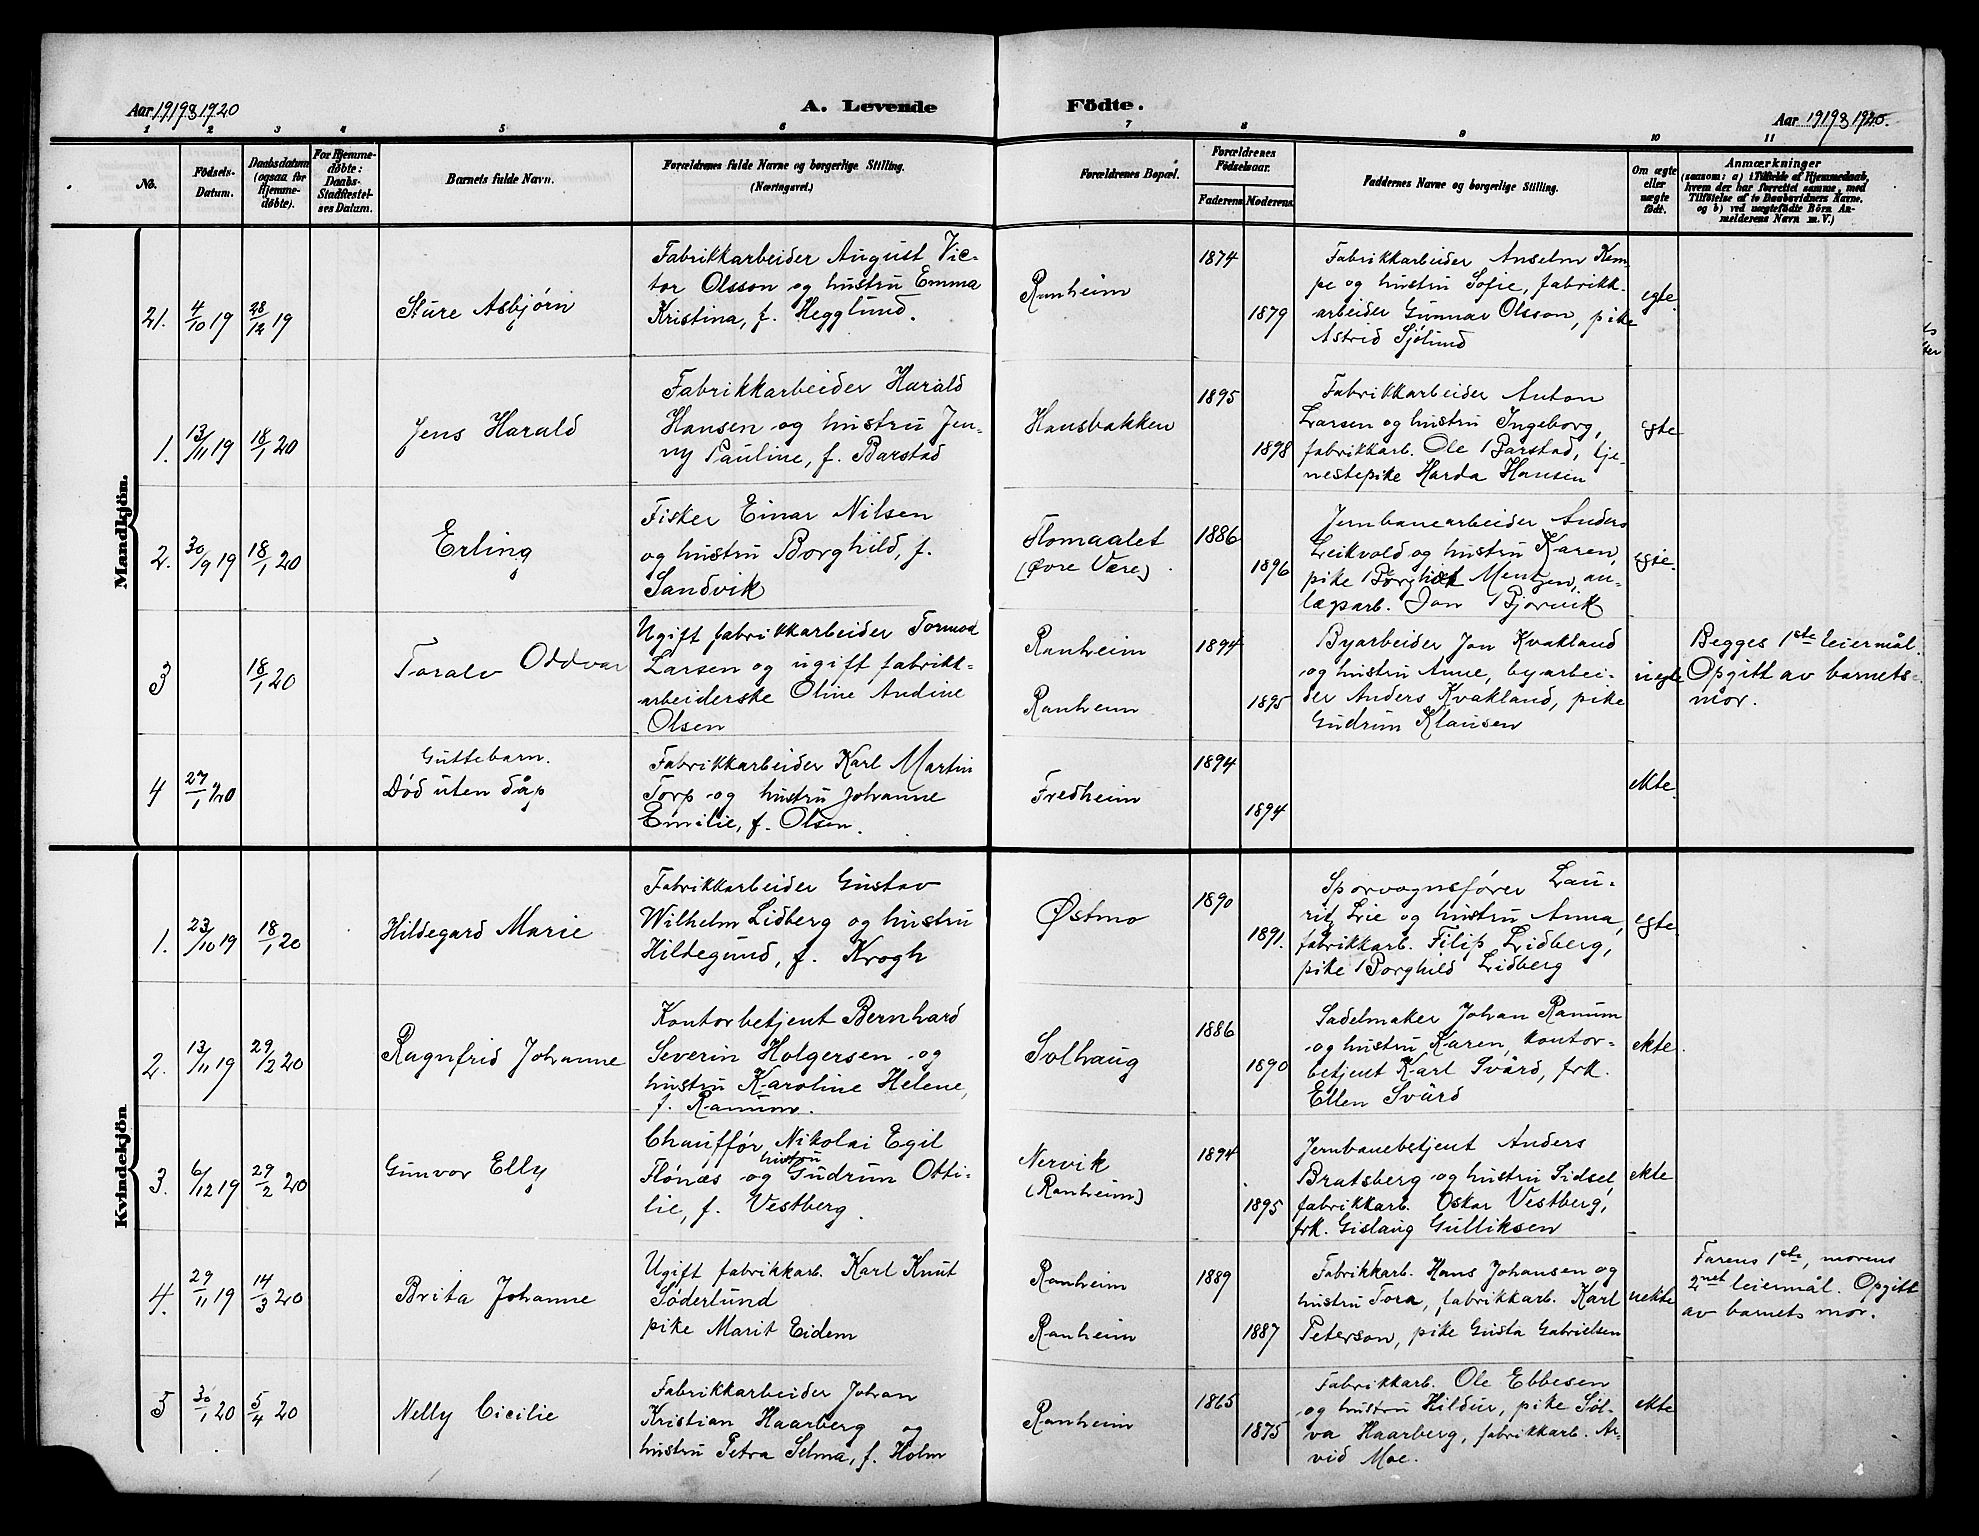 Aar 1919 & 1920
A. Levende Födte.
Aar 1919 & 1920.
1 2 3 4 5 6 7 8 9 10 11
No.
Födsels-
Datum.
Daabsdatum
(ogsaa for
Hjemme-
döbte).
For Hjemme-
døbte:
Daabs-
Stadfæstel-
ses Datum.
Barnets fulde Navn.
Forældrenes fulde Navne og borgerlige Stilling.
(Næringsvei.)
Forældrenes Bopæl.
Forældrenes
Födselsaar.
Faderens Moderens
Faddernes Navne og borgerlige Stilling.
Om ægte
eller
uægte
födt.
Anmærkninger
(saasom: a) i Tilfælde af Hjemmedaab,
hvem der har forrettet samme, med
Tilföielse af to Daabsvidners Navne,
og b) ved uægtefödte Börn An-
melderens Navn m. V.)
Mandkjön.
21. 4/10 19 28/12 19
Sture Asbjørn
Fabrikkarbeider August Vic-
tor Olsson og hustru Emma
Kristina, f. Hegglund.
Ranheim
1874
1879
Fabrikkarbeider Anselm Kem-
pe og hustru Sofie, fabrikk-
arbeider Gunnar Olsson, pike
Astrid Sjølund
egte.
1. 13/11 19 18/1 20
Jens Harald
Fabrikkarbeider Harald
Hansen og hustru Jen-
ny Pauline, f. Barstad
Hansbakken
1895
1898
Fabrikkarbeider Anton
Larsen og hustru Ingeborg,
fabrikkarb. Ole Barstad, tje-
nestepike Harda Hansen
egte
2. 30/9 19 18/1 20
Erling
Fisker Einar Nilsen
og hustru Borghild, f.
Sandvik
Flomaalet
(Øvre Være)
1886
1896
Jernbanearbeider Anders
Leikvold og hustru Karen,
pike Borghild Mentzen, an-
lægsarb. Jon Bjørvik
egte.
3 18/1 20
Toralv Oddvar
Ugift fabrikkarbeider Tormod
Larsen og ugift fabrikk-
arbeiderske Oline Andine
Olsen
Ranheim
Ranheim
1894
1895
Byarbeider Jon Kvakland
og hustru Anne, byarbei-
der Anders Kvakland, pike
Gudrun Klausen
uegte
Begges 1ste leiermål.
Opgitt av barnets
mor.
4 27/1 20
Guttebarn.
Død uten dåp
Fabrikkarbeider Karl Martin
Torp og hustru Johanne
Emilie, f. Olsen.
Fredheim
1894
1894
ekte.
Kvindekjön.
1. 23/10 19 18/1 20
Hildegard Marie
Fabrikkarbeider Gustav
Wilhelm Lidberg og hustru
Hildegund, f. Krogh
Østmo
1890
1891.
Sporvognsfører Lau-
ritz Lie og hustru Anna,
fabrikkarb. Filip Lidberg,
pike Borghild Lidberg
egte.
2. 13/11 19 29/2 20
Ragnfrid Johanne
Kontorbetjent Bernhard
Severin Holgersen og
hustru Karoline Helene,
f. Ranum.
Solhaug
1886
1890
Sadelmaker Johan Ranum
og hustru Karen, kontor-
betjent Karl Svärd, frk.
Ellen Svärd
ekte.
3. 6/12 19 29/2 20
Gunvor Elly
Chauffør Nikolai Egil
Flønæs og hustru Gudrun Otti-
lie, f. Vestberg.
Nervik
(Ranheim)
1894
1895
Jernbanebetjent Anders
Bratsberg og hustru Sidsel,
fabrikkarb. Oskar Vestberg,
frk. Gislaug Gulliksen
ekte
4. 29/11 19 14/3 20
Brita Johanne
Ugift fabrikkarb. Karl Knut
Söderlund
pike Marit Eidem
Ranheim
Ranheim
1889
1887
Fabrikkarb. Hans Johansen og
hustru Tora, fabrikkarb. Karl
Peterson, pike Gusta Gabrielsen
uekte
Farens 1ste, morens
2net leiermål. Opgitt
av barnets mor.
5 30/1 20 5/4 20
Nelly Cicilie
Fabrikkarbeider Johan
Kristian Haarberg og
hustru Petra Selma, f. Holm
Ranheim
1865
1875
Fabrikkarb. Ole Ebbesen
og hustru Hildur, pike Søl-
va Haarberg, fabrikkarb. Ar-
vid Moe.
ekte